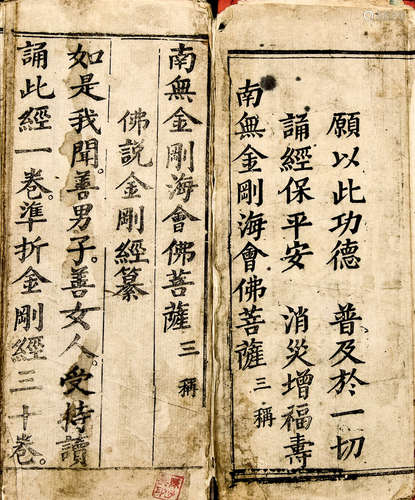 願以此功德　普及於一切
誦經保平安　消災增福壽
南無金剛海會佛菩薩三稱
南無金剛海會佛菩薩三稱
佛説金剛經纂
如是我聞。善男子。善女人。受持讀
誦此經一卷。準折金剛經三十卷。